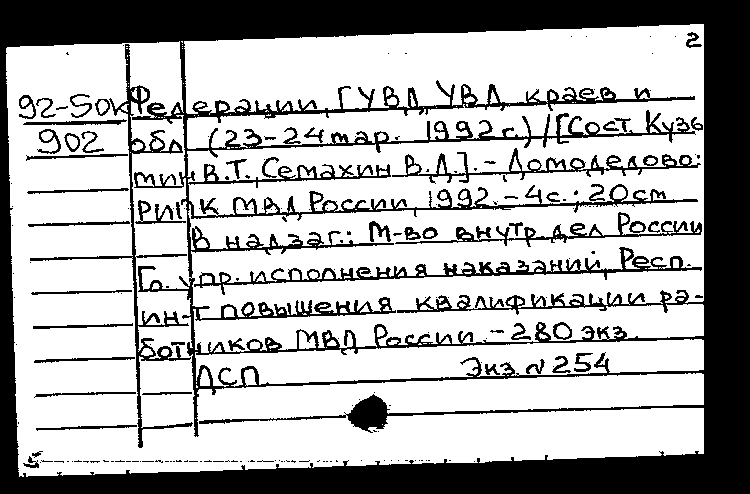 2
92-50к Федерации, ГУВД, УВД краев и
902 обл. (23-24 мар. 1992 г.) / [Сост. Кузь
мин В.Т., Семахин В.Д.]. - Домодедово:
РИПК МВД России, 1992. - 4 с.; 20 см
В надзаг.: М-во внутр. дел России
Гл. упр. исполнения наказаний, Респ.
ин-т повышения квалификации ра-
ботников МВД России. - 280 экз.
ДСП. Экз. № 254